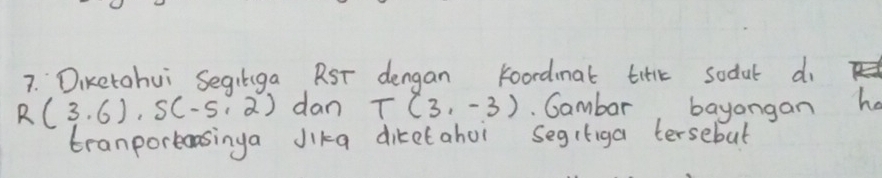 7. Diketahui Segitiga RST dengan Koordinat titik sudut di
R(3.6), S(-5, 2) dan T(3, -3). Gambar bayangan ha
tranportasinya Jika diketahui Segitiga tersebut